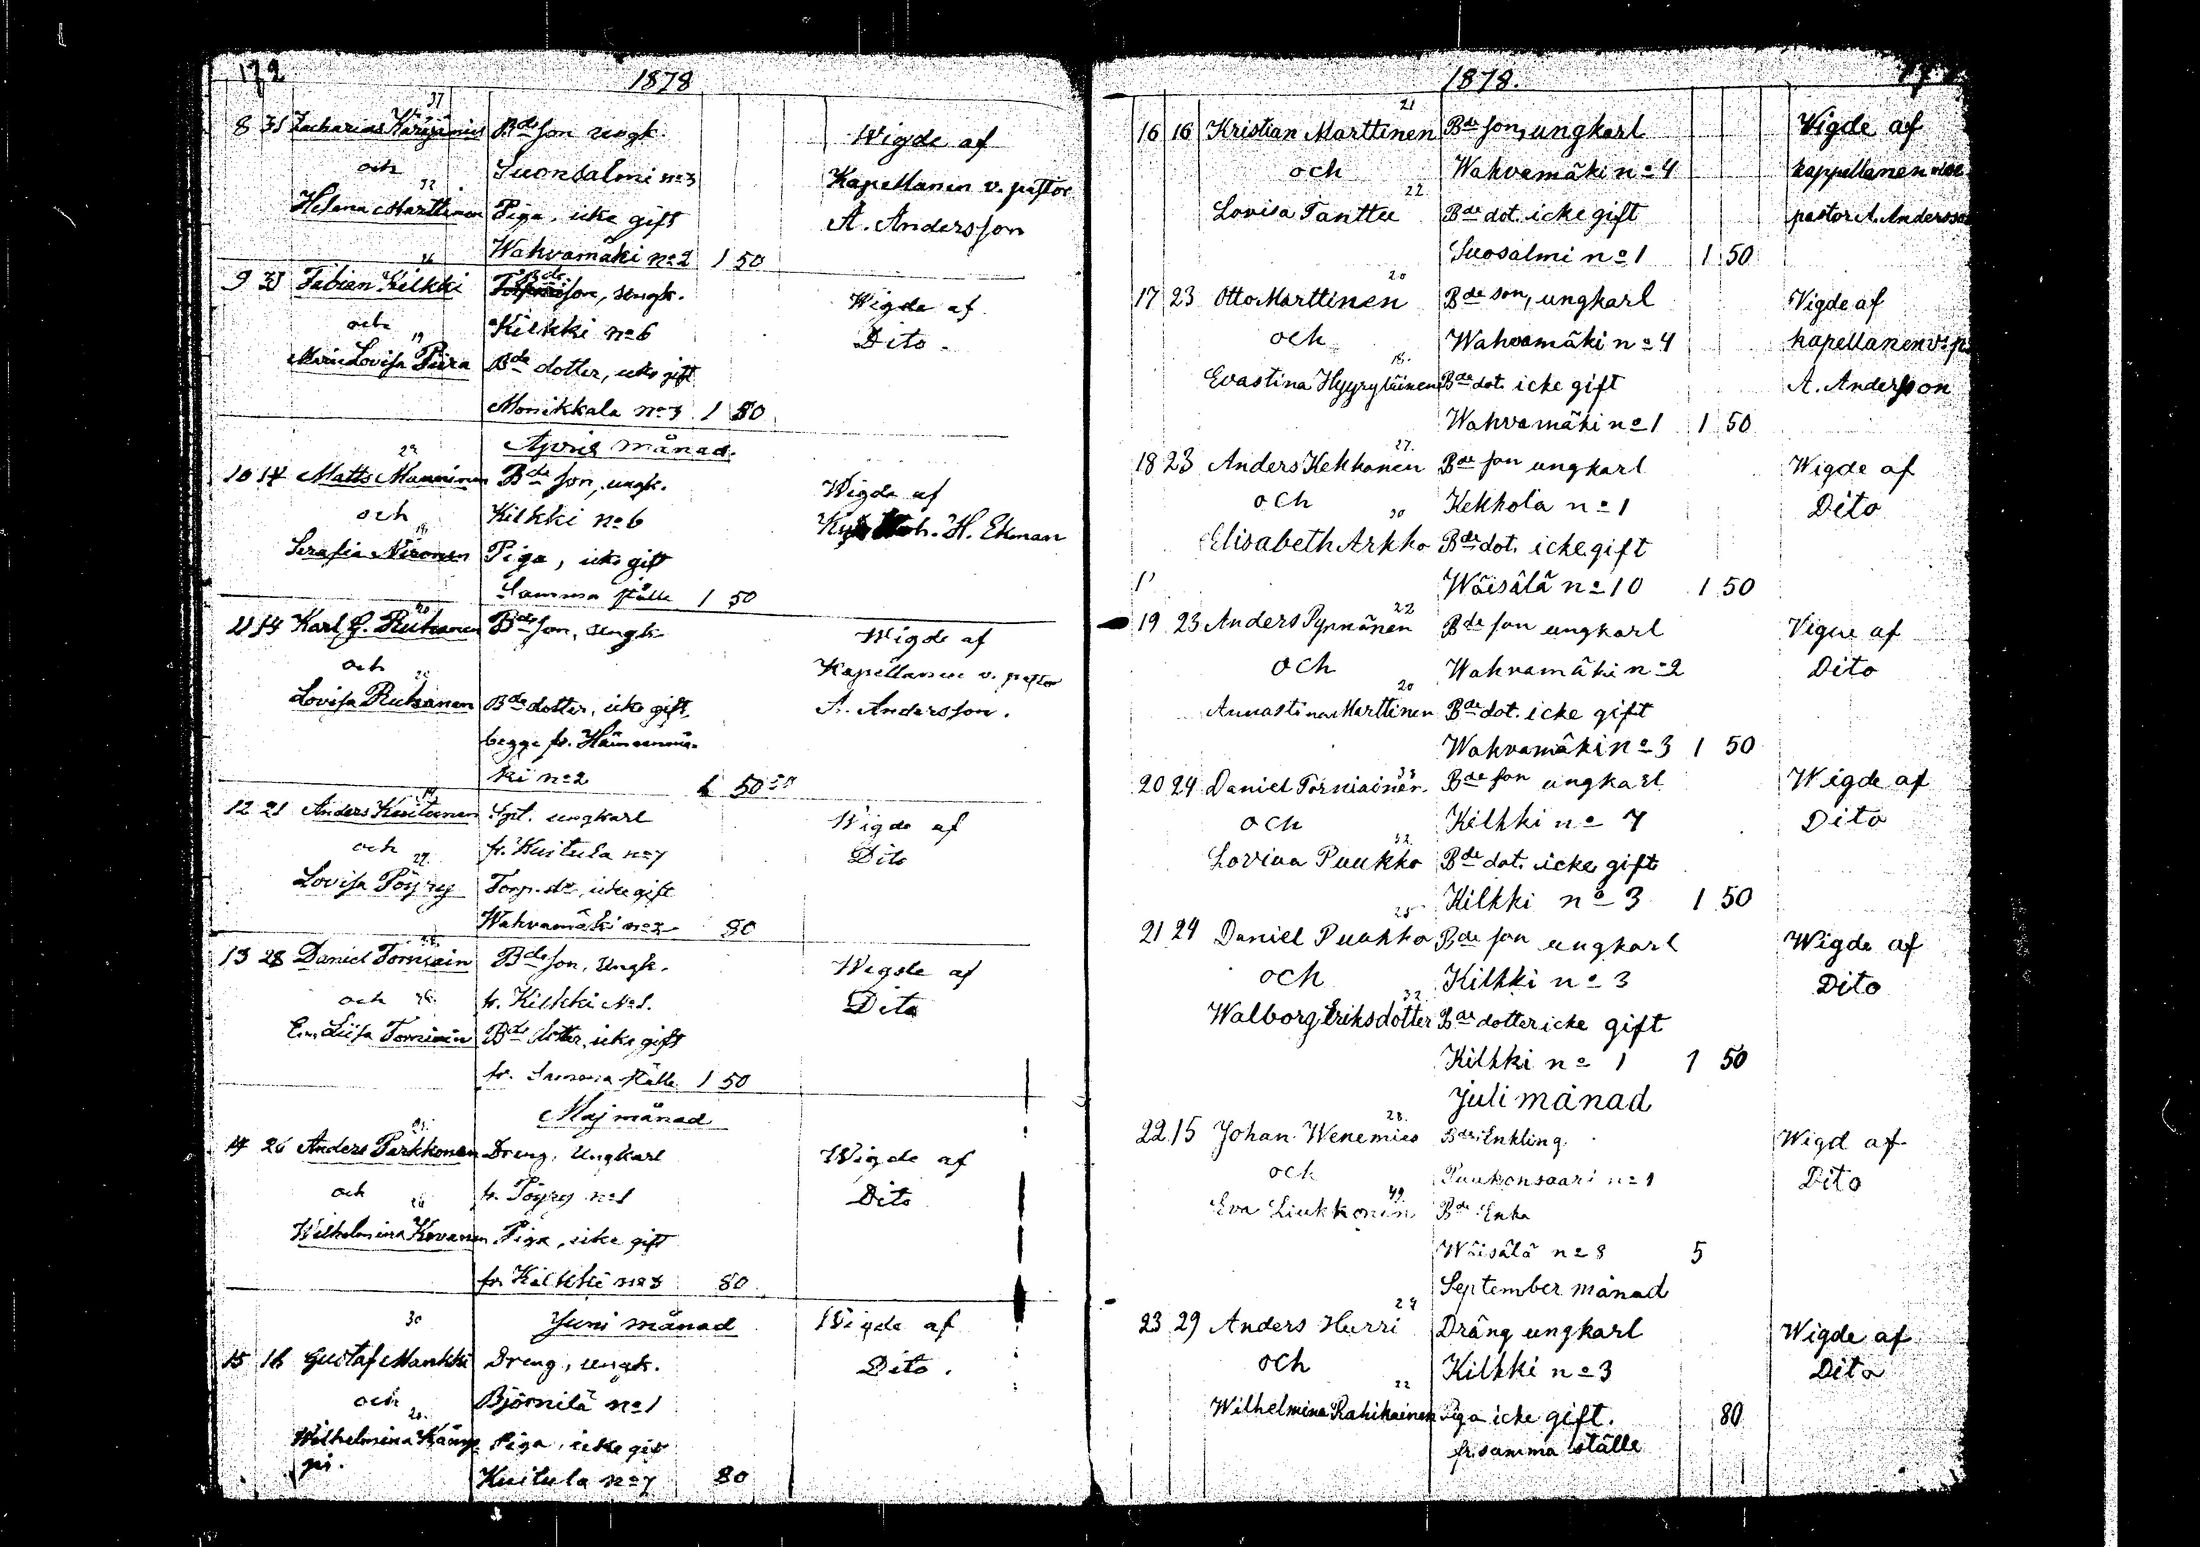 172
1878
37
8 31 Zacharias Kärjämies Bde son ungk. Wigde af
och Suonsalmi no 3 Kapellanen v. pastor
32
Helena Marttinen Piga, icke gift A. Andersson
Wahvamäki no 2 1 50
26
9 31 Fabian Kilkki Bde son, ungk. Wigde af
och Kilkki no 6 Dito.
19
Maria Lovisa Piira Bde dotter, icke gift
Monikkala no 3 1 50
April månad.
22
10 14 Matts Manninen Bde son, ungk. Wigde af
och Kilkki no 6 H. Ekman
19
Serafia Nironen Piga, icke gift
Samma ställe 1 50
20
11 14 Karl G. Ruhanen Bde son, ungk. Wigde af
och Kapellanen v. pastor
22
Lovisa Ruhanen Bde dotter, icke gift A. Andersson.
begge fr. Hämeenmä-
ki no 2 50
19
12 21 Anders Kuitunen Spt. ungkarl Wigde af
och fr. Kuitula no 7 Dito
29
Lovisa Pöyry Torp. dr, icke gift
Wahvamäki no 2 80
13 28 Daniel Torniain Bde son, Ungk. Wigde af
och fr. Kilkki No 1. Dito
26
Eva Liisa Torniain Bde dotter, icke gift
fr. Samma ställe 1 50
Maj månad
14 26 Anders Parkkonen Dreng, Ungkarl Wigde af
och fr. Pöyry no 1 Dito
28
Wilhelmina Kovanen Piga, icke gift
fr. Kilkki no 3 80
30 Juni månad Wigde af
15 16 Gustaf Mankki Dreng, ungk. Dito.
och Björnilä no 1
20.
Wilhelmina Kämp- Piga, icke gift
pi. Kuitula no 7 80
1878.
21
16 16 Kristian Marttinen Bde son, ungkarl Vigde af
och Wahvamäki no 4 kappellanen vice
22
Lovisa Tanttu Bde dot. icke gift pastor A. Andersson
Suosalmi no 1 1 50
20
17 23 Otto Marttinen Bde son, ungkarl Vigde af
och Wahvamäki no 4 kapellanen v. p.
18.
Evastina Hyyryläinen Bde dot. icke gift A. Andersson
Wahvamäki no 1 1 50
27.
18 23 Anders Kekkonen Bde son ungkarl Wigde af
och Kekkola no 1 Dito
30
Elisabeth Arkko Bde dot. icke gift
Wäisälä no 10 1 50
22
19 23 Anders Pynnönen Bde son ungkarl Vigde af
och Wahvamäki no 2 Dito
20
Annastina Marttinen Bde dot. icke gift
Wahvamäki no 3 1 50
33
20 24 Daniel Torniainen Bde son ungkarl Wigde af
och Kilkki no 7 Dito
32.
Loviua Puukko Bde dot. icke gift
Kilkki no 3 1 50
25
21 24 Daniel Puukko Bde son ungkarl Wigde af
och Kilkki no 3 Dito
32
Walborg Eriksdotter Bde dotter icke gift
Kilkki no 1 1 50
Juli månad
28.
22 15 Johan Wenemies Bde Enkling Wigd af
och Puukonsaari no 1 Dito
49.
Eva Liukkonen Bde Enka
Wäisälä no 8 5
September månad
24
23 29 Anders Hurri Dräng ungkarl Wigde af
och Kilkki no 3 Dito
22
Wilhelmina Rahikainen Piga icke gift. 80
fr. samma ställe